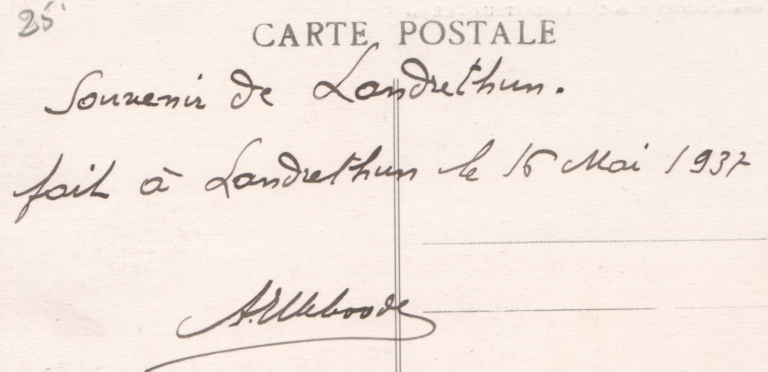 25
CARTE POSTALE
Souvenir de Landrethun.
fait à Landrethun le 16 Mai 1937